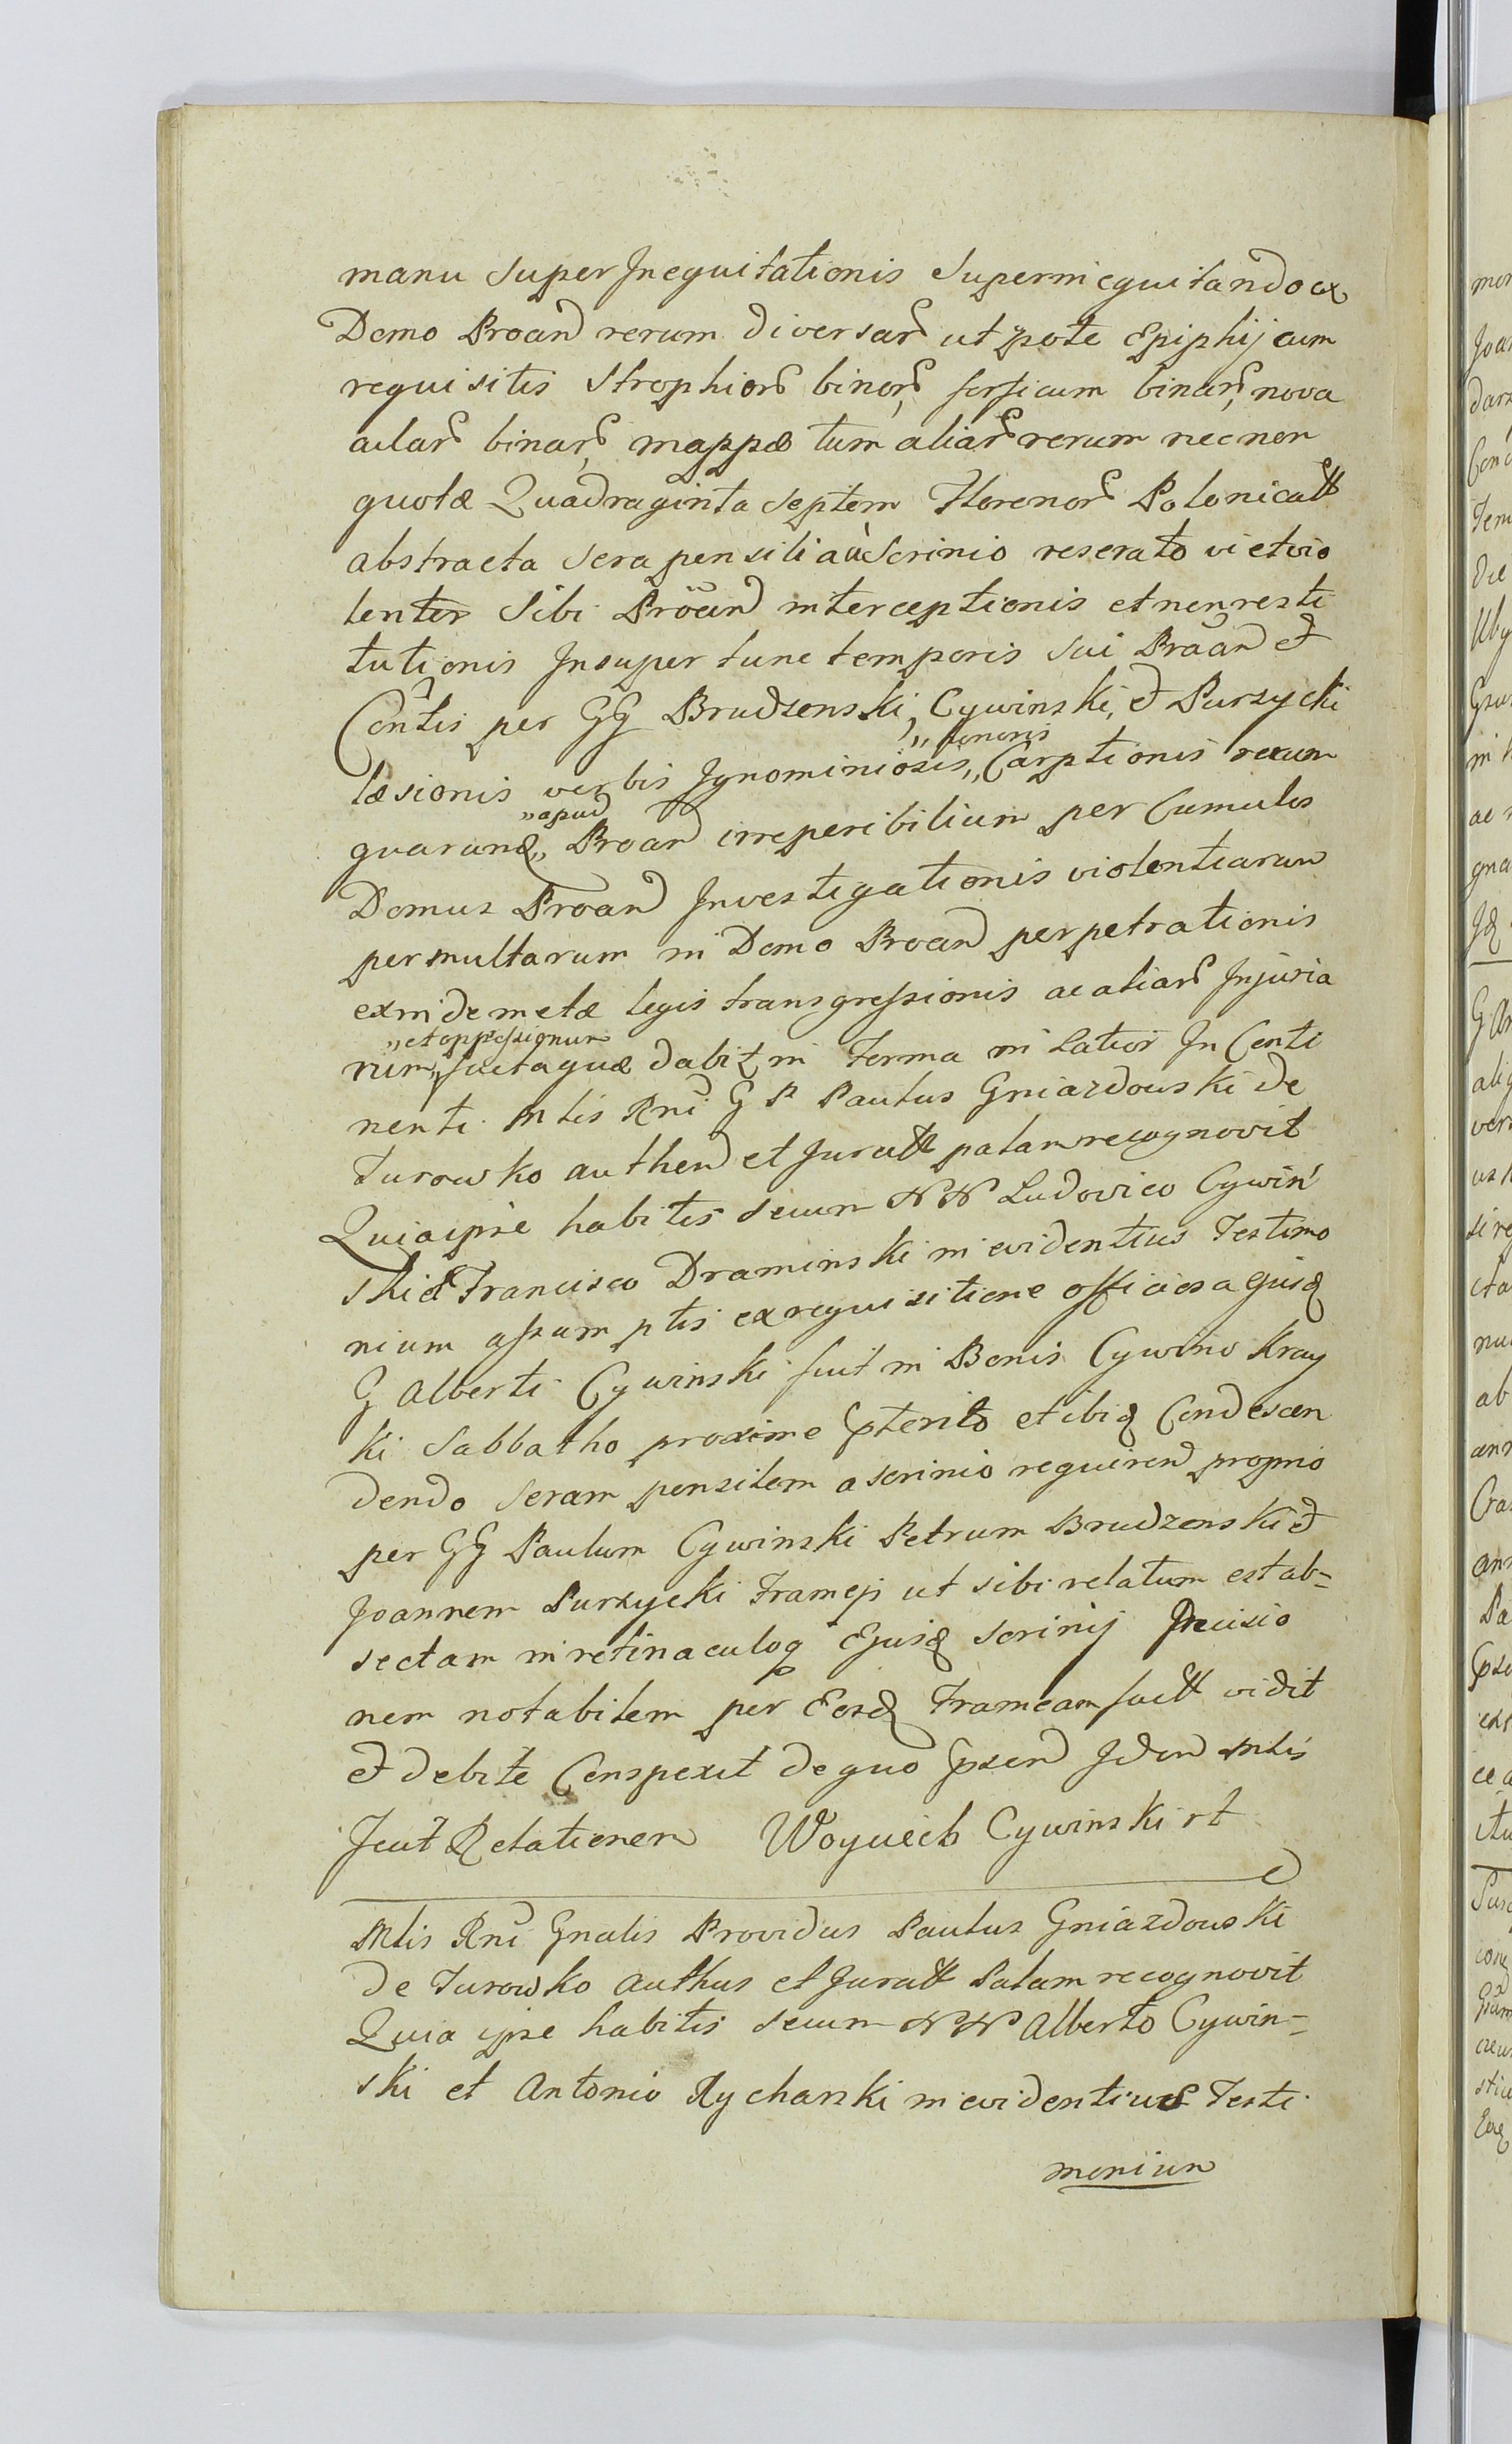 manu superInequitationis Superinequitando ex
Domo Proand rerum diversar ut pote Epiphij cum
requisitis Strophior binor, forficum binar, nova
cular binar, mappæ tum aliar rerum nec non
quotæ Quadraginta septem Florenor Polonicall
abstracta sera pensili a Scrinio reserato vi et vio
lenter Sibi Proand interceptionis et non resti
tutionis Insuper tunc temporis sui Proand et
Contis per GG Brudzenski, Cywinski, et Purzycki
læsionis verbis Ignominiosis, „honoris Carptionis rerum
quarund, „apud Proand irreperibilium per Cumulos
Domus Proand Investigationis violentiarum
permultarum in Domo Proand perpetrationis
exinde metæ legis transgressionis ac aliar Injuria
rum, „et oppressionum factaquæ dabit in Forma in Latior In Conti
nenti Mtis Rni G P Paulus Gniazdowski de
Turowko authen et Jurat palam recognovit
Quia ipse habitis secum NN Ludovico Cywin
ski et Francisco Draminski in evidentius Testimo
nium assum ptis ex requisitione officiosa Ejusq
G Alberti Cywinski fuit in Bonis Cywino Kray
ki Sabbatho proxime pterito et ibiq Condescen
dendo Seram pensilem a scrinio requiren proprio
per GG Paulum Cywinski Petrum Brudzenski et
Joannem Purzycki Frameis ut sibi relatum est ab=
sectam in retinaculoq Ejusq scrinij Incisio
nem notabilem per Eosd Frameam fact vidit
et debite Conspexit de quo psen Iden Mtis
fecit Relationem Woyciech Cywinski rt
Mtis Rni Gnalis Providus Paulus Gniazdowski
de Turowko authus et Jurat Palam recognovit
Quia ipse habitis secum NN Alberto Cywin=
ski et Antonio Rycharski in evidentius Testi
monium